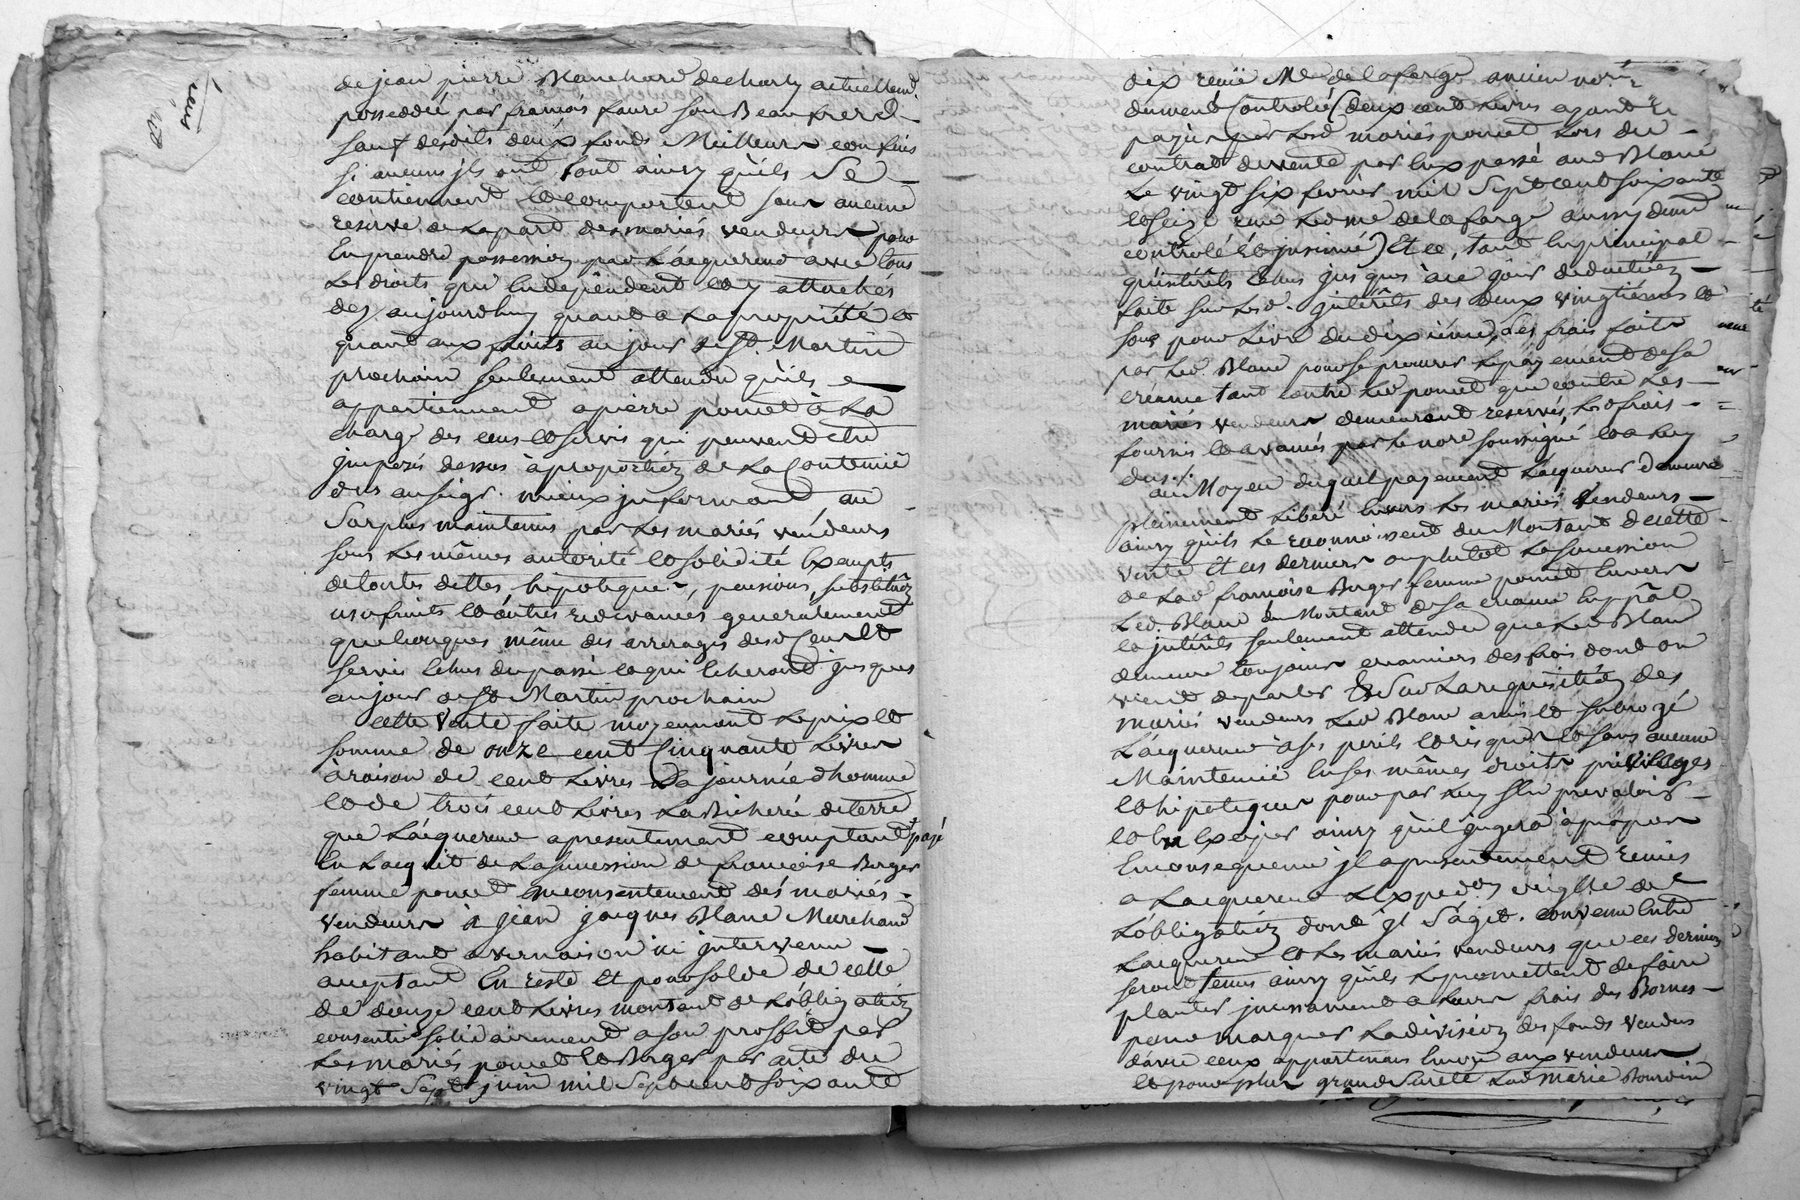 de jean pierre Blanchard decharly actuellemt.
possedée par françois faure son Beaufrere &
sauf desdits deux fonds Meilleurs confins
si aucuns jls ont, tout ainsy quils se
contiennent & comportent sans aucune
reserve de la part des mariés vendeurs pour
En prendre possession par Lacquereur avec tous
Les droits qui En dependent & y attachés
dez aujourdhuy quand a La propriété &
quant aux fruits au jour de St. Martin
prochain seulement attendu quils
appartiennent a pierre poncet à La
charge des cens & servis qui peuvent etre
jmposés dessus à proportion de La Contenüe
dus au seigr. mieux jnformant au
surplus maintenus par Les mariés vendeurs
sous Les mêmes autorité & solidité Exempts
de toutes dettes, hipoteques, pensions, substitüon
usufruits & autres redevances generalement
quelconques même des arrerages desd Cens &
servis Echus du passé & qui Echeront jusques
au jour de St Martin prochain
cette vente faite moyennant Le prix &
somme de onze cent Cinquante Livres
à raison de cent Livres La journée dhomme
& de trois cent Livres La Bicherée de terre
que Lacquereur a presentement comptant payé
En Lacquit de La succession de françoise Berger
femme poncet du consentement des mariés
vendeurs à jean jacques Blanc Marchand
habitant a vernaison ici jntervenu
acceptant En reste Et pour solde de celle
de douze cent Livres montant de Lobligation
consentie solidairement a son proffit par
Les mariés poncet & Berger par acte du
vingt Sept juin mil Septcent soixante
dix reçu Me delafarge ancien nore
düement Controllé (deux cent Livres ayant Eté
payés par Lesd mariés poncet Lors du
contrat de vente par Eux passé aud Blanc
Le vingt six fevrier mil Septcent soixante
& seize reçu Led me delafarge aussy duemt
controlé & jnsinué) Et ce, tant En principal
quinterêts Echus jusques à ce jour deduction
faite sur Lesd. jnterêts des deux vingtiémes &
sous pour Livre du dixiéme, Les frais faits
par Led Blanc pour se procurer Le payement de sa
créance tant contre Led poncet que contre Les
mariés vendeurs demeurant reservés, Led frais
fournis & avancés par Le nore soussigné & a Luy
dus ./.
au Moyen duquel payement Lacquereur demeure
pleinement Libéré Envers Les mariés vendeurs
ainsy quils Le reconnoissent du Montant de cette
vente Et ces derniers ou plutôt La succession
de Lad françoise Berger femme poncet Envers
Led Blanc du Montant de sa creance En ppâl
& jnterêts seulement attendu que Led Blanc
demeure toujours creancier des frais dont on
vient de parler & Sur La requisition des
mariés vendeurs Led Blanc a mis & subrogé
Lacquereur à ses perils & risques & sans aucune
Maintenüe En ses mêmes droits privileges
& hipoteques pour par Luy s'en prevaloir
& En Exciper ainsy quil jugera à propos
En consequence jl a presentement remis
a Lacquereur LExpedon en regle de
Lobligation dont jl Sagit. convenu Entre
Lacquereur & Les mariés vendeurs que ces derniers
seront tenus ainsy quils Le promettent de faire
planter jncessament a Leurs frais des Bornes
pour marquer La division des fonds vendus
davec ceux appartenans Encore aux vendeurs
& pour plus grande Sureté Lad Marie Bourdin